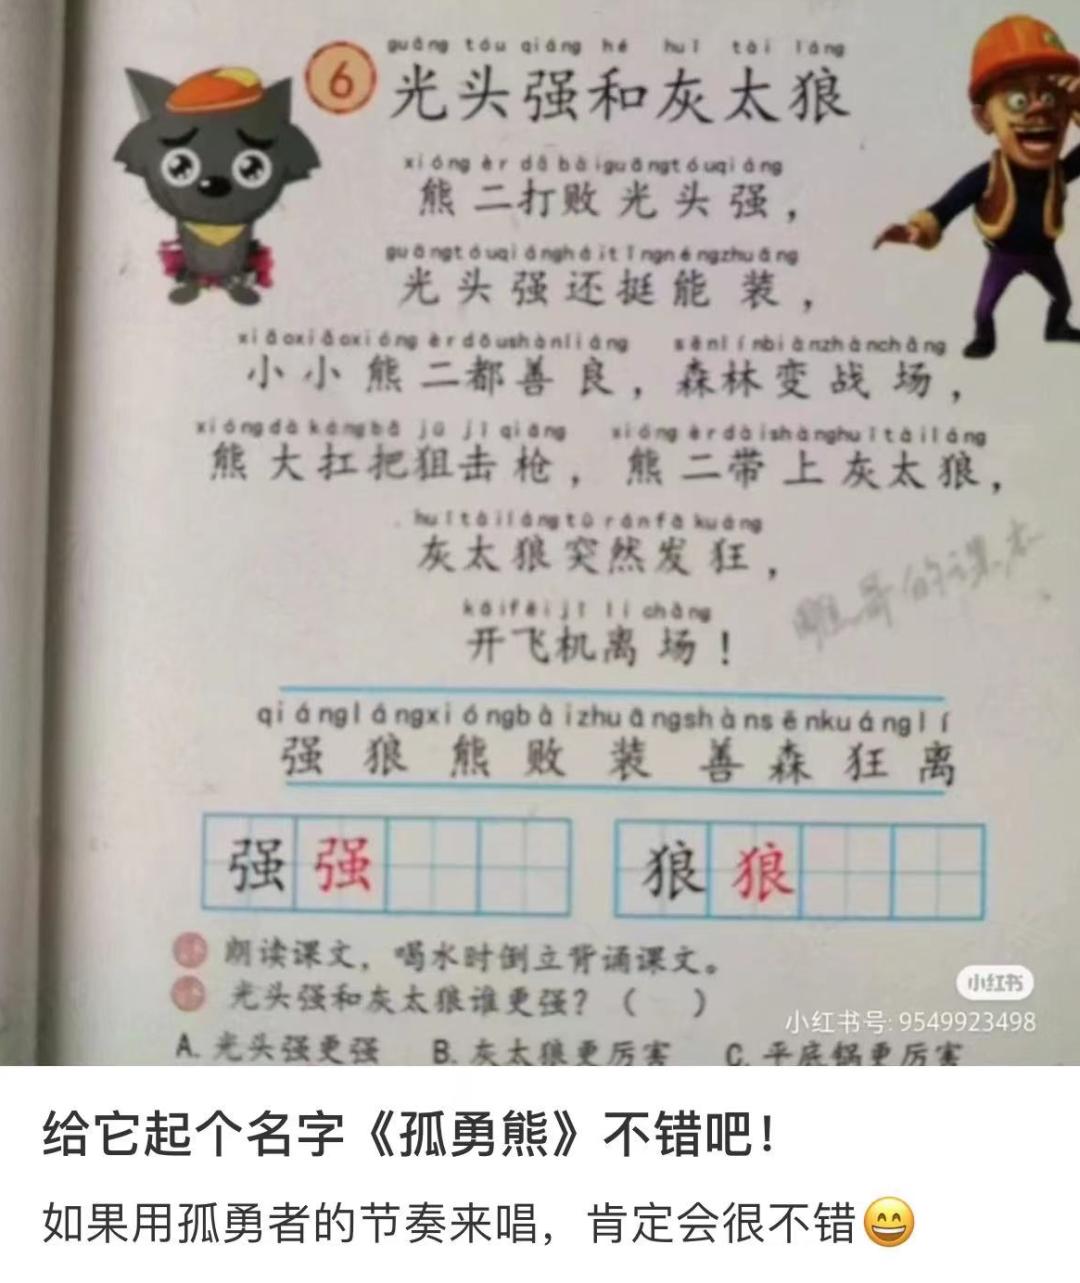 guāng tóu qiáng hé huī tài láng
6 光头强和灰太狼
xióng èr dǎ bài guāng tóu qiáng
熊二打败光头强，
guāng tóu qiáng hái tǐng néng zhuāng
光头强还挺能装，
xiǎo xiǎo xióng èr dōu shàn liáng sēn lín biàn zhàn chǎng
小小熊二都善良，森林变战场，
xióng dà káng bǎ jū jī qiāng xióng èr dài shàng huī tài láng
熊大扛把狙击枪，熊二带上灰太狼，
huī tài láng tū rán fā kuáng
灰太狼突然发狂，
kāi fēi jī lí chǎng
开飞机离场！
雕哥的课本
qiáng láng xióng bài zhuāng shàn sēn kuáng lí
强 狼 熊 败 装 善 森 狂 离
强 强 狼 狼
朗读课文，喝水时倒立背诵课文。
光头强和灰太狼谁更强？（ ）
A. 光头强更强 B. 灰太狼更厉害 C. 平底锅更厉害
小红书
小红书号: 9549923498
给它起个名字《孤勇熊》不错吧！
如果用孤勇者的节奏来唱，肯定会很不错😄